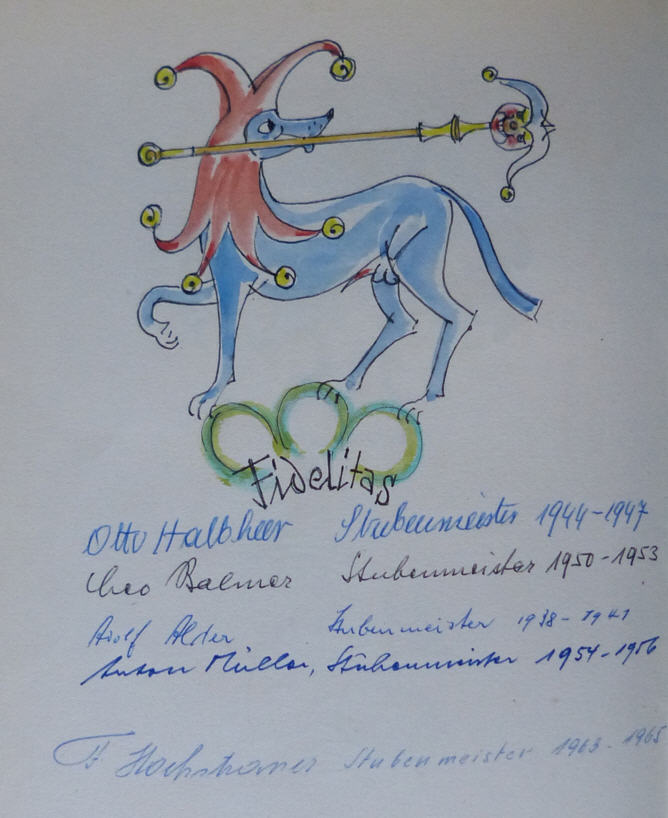 Fidelitas
Otto Halbheer Stubenmeister 1944-1947
Theo Balmer Stubenmeister 1950-1953
Adolf Alder Stubenmeister 1938-1941
Anton Müller, Stubenmeister 1954-1956
Stubenmeister 1963-1965